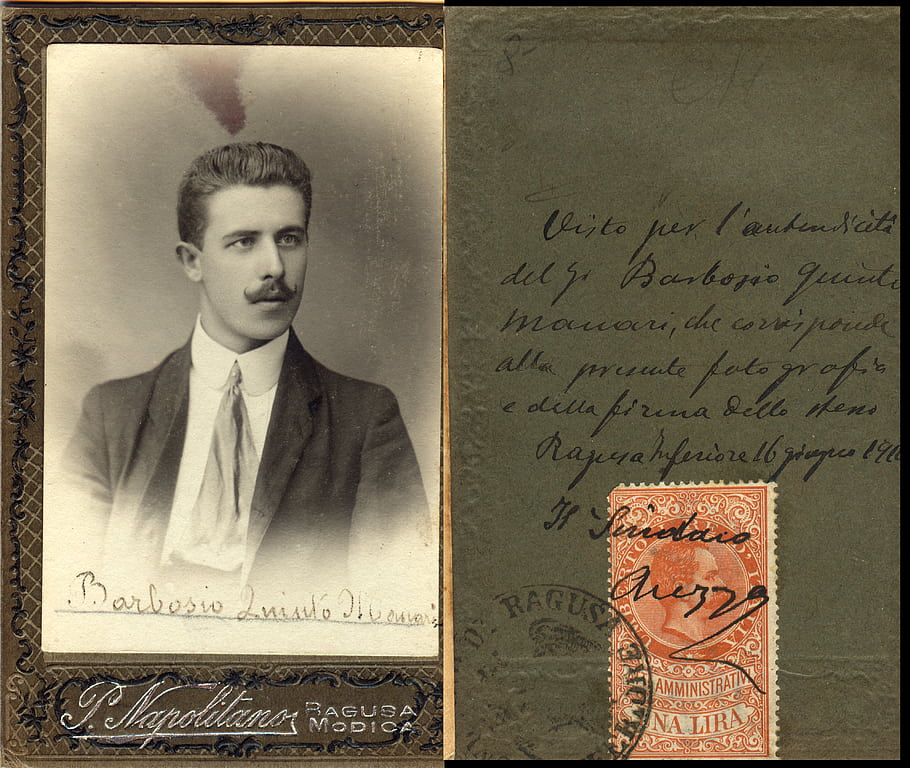 Barbosio Quinto Manari
P. Napolitano
RAGUSA
MODICA
Visto per l'autendicità
del Sr Barbosio Quinto
Manari, che corrisponde
alla presente fotografia
e della firma dello steso
Ragusa Inferiore 16 giugno
Il Sindaco
Arezzo
RAGUSA
AMMINISTRATIV
NA LIRA